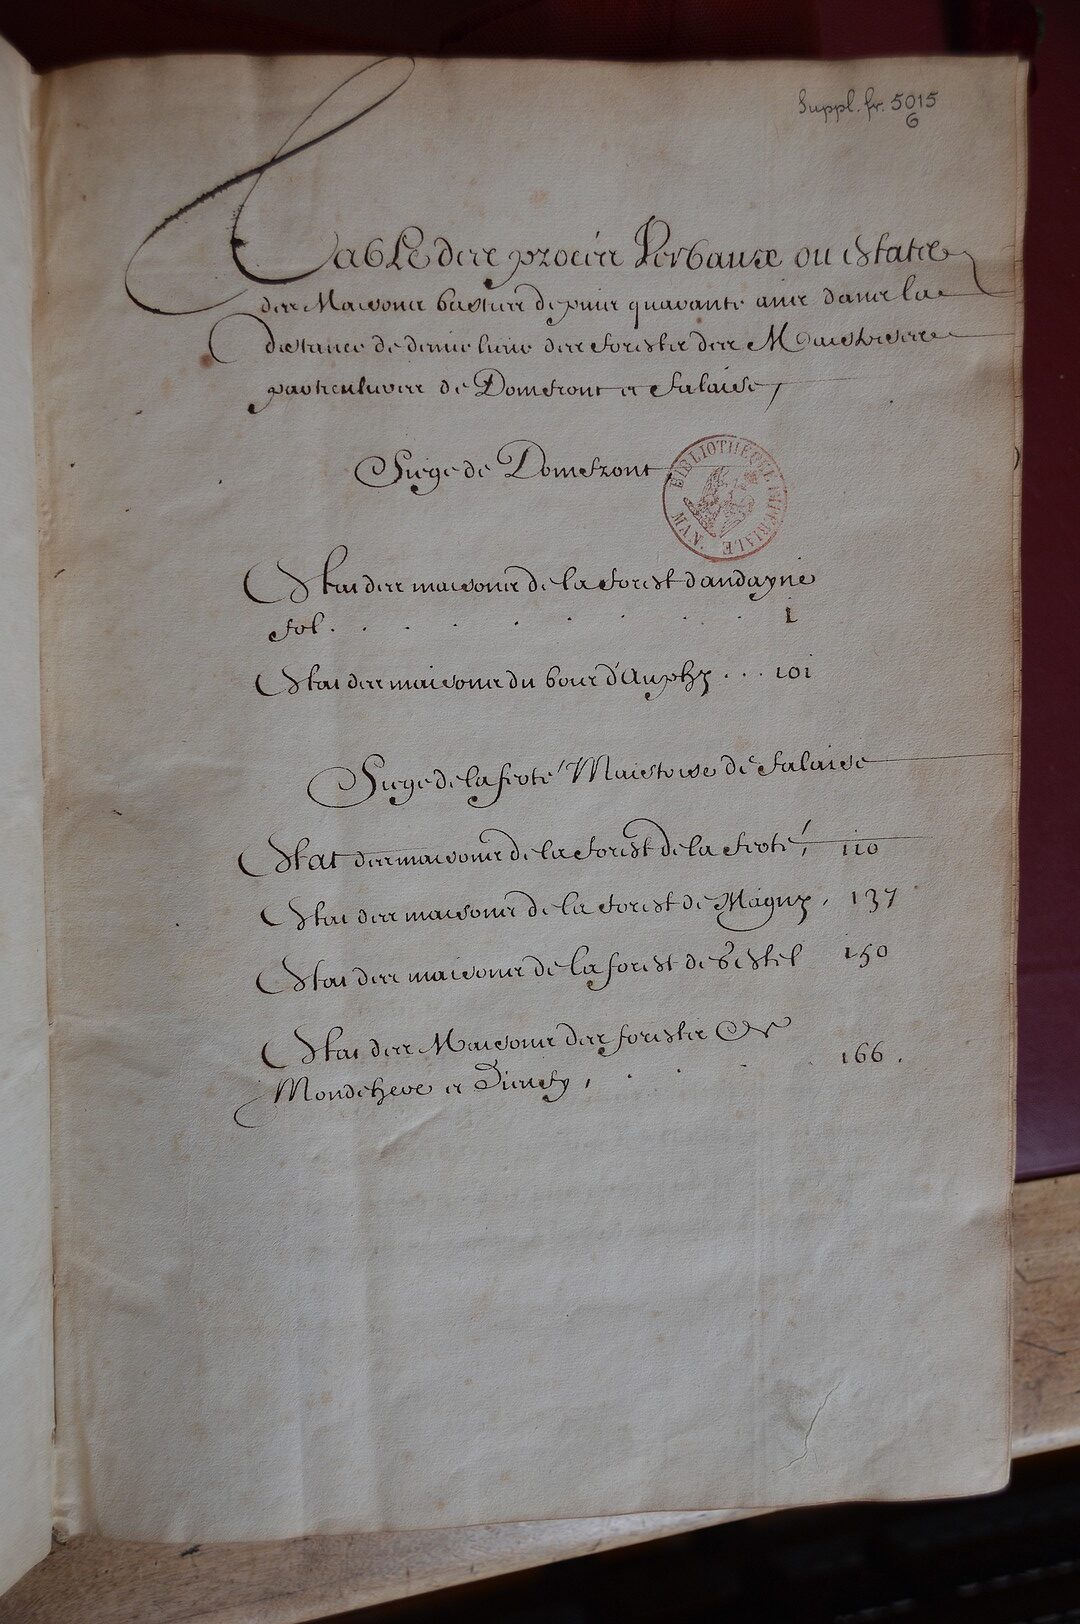 Suppl. fr. 5015
6
Table des procès Verbaux ou estatz
des Maisons basties depuis quarante ans dans la
distance de demie lieue des forestz des Maistrises
particulieres de Domfront et falaise,
Siege de Domfront
BIBLIOTHEQUE IMPERIALE MAN.
Estat des maisons de la forest dandayne
fol. . . . . . . . 1
Estat des maisons du bour d'Auphy . . . 101
Siege de la ferté Maistrise de falaise
Estat des maisons de la forest de la ferté, 110
Estat des maisons de la forest de Magny, 137
Estat des maisons de la forest de 150
Estat des Maisons des forestz de
Mondehere et 166.